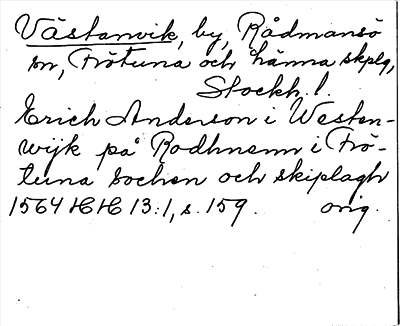 Västanvik, by, Rådmansö
sn, Frötuna och Länna skplg,
Stockh. l.
Erich Anderson i Westen-
wijk på Rodhmenn i Frö-
tuna sochen och skiplagh
1564 HH 13:1, s. 159. orig.